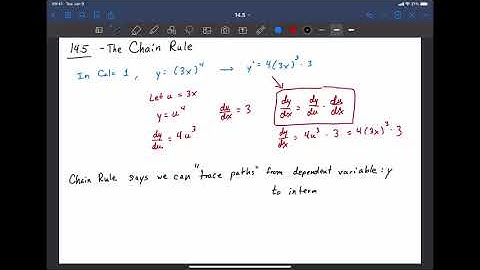 09:41 Tue Jan 9
14.5
14.5 - The Chain Rule
In Calc 1, y = (3x)^4 → y' = 4(3x)^3 · 3
Let u = 3x
y = u^4
du/dx = 3
dy/dx = dy/du · du/dx
dy/du = 4u^3
dy/dx = 4u^3 · 3 = 4(3x)^3 · 3
Chain Rule says we can "trace paths" from dependent variable: y
to interm